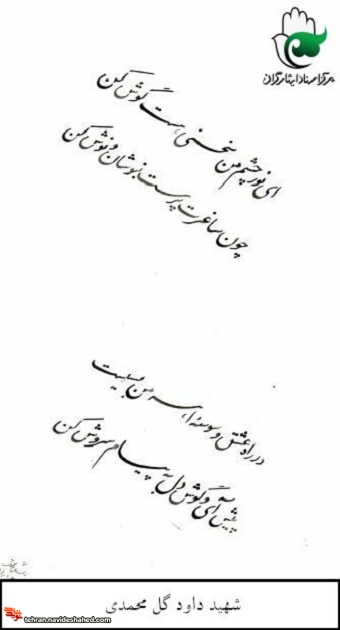 مرکز اسناد ایثارگران
ای نور چشم من سخنی هست گوش کن
چون ساغرت پر است بنوشان و نوش کن
در راه عشق وسوسه اهرمن بسیست
پیش آی و گوش دل به پیام سروش کن
شهید داود گل محمدی
tehran.navideshahed.com